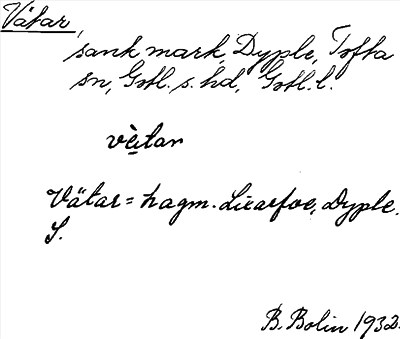 Vätar,
sank mark, Dyple, Tofta
sn, Gotl. s. hd, Gotl. l.
vèitar
Vätar = hagm. Licarfoe, Dyple.
S.
B. Bolin 1932.